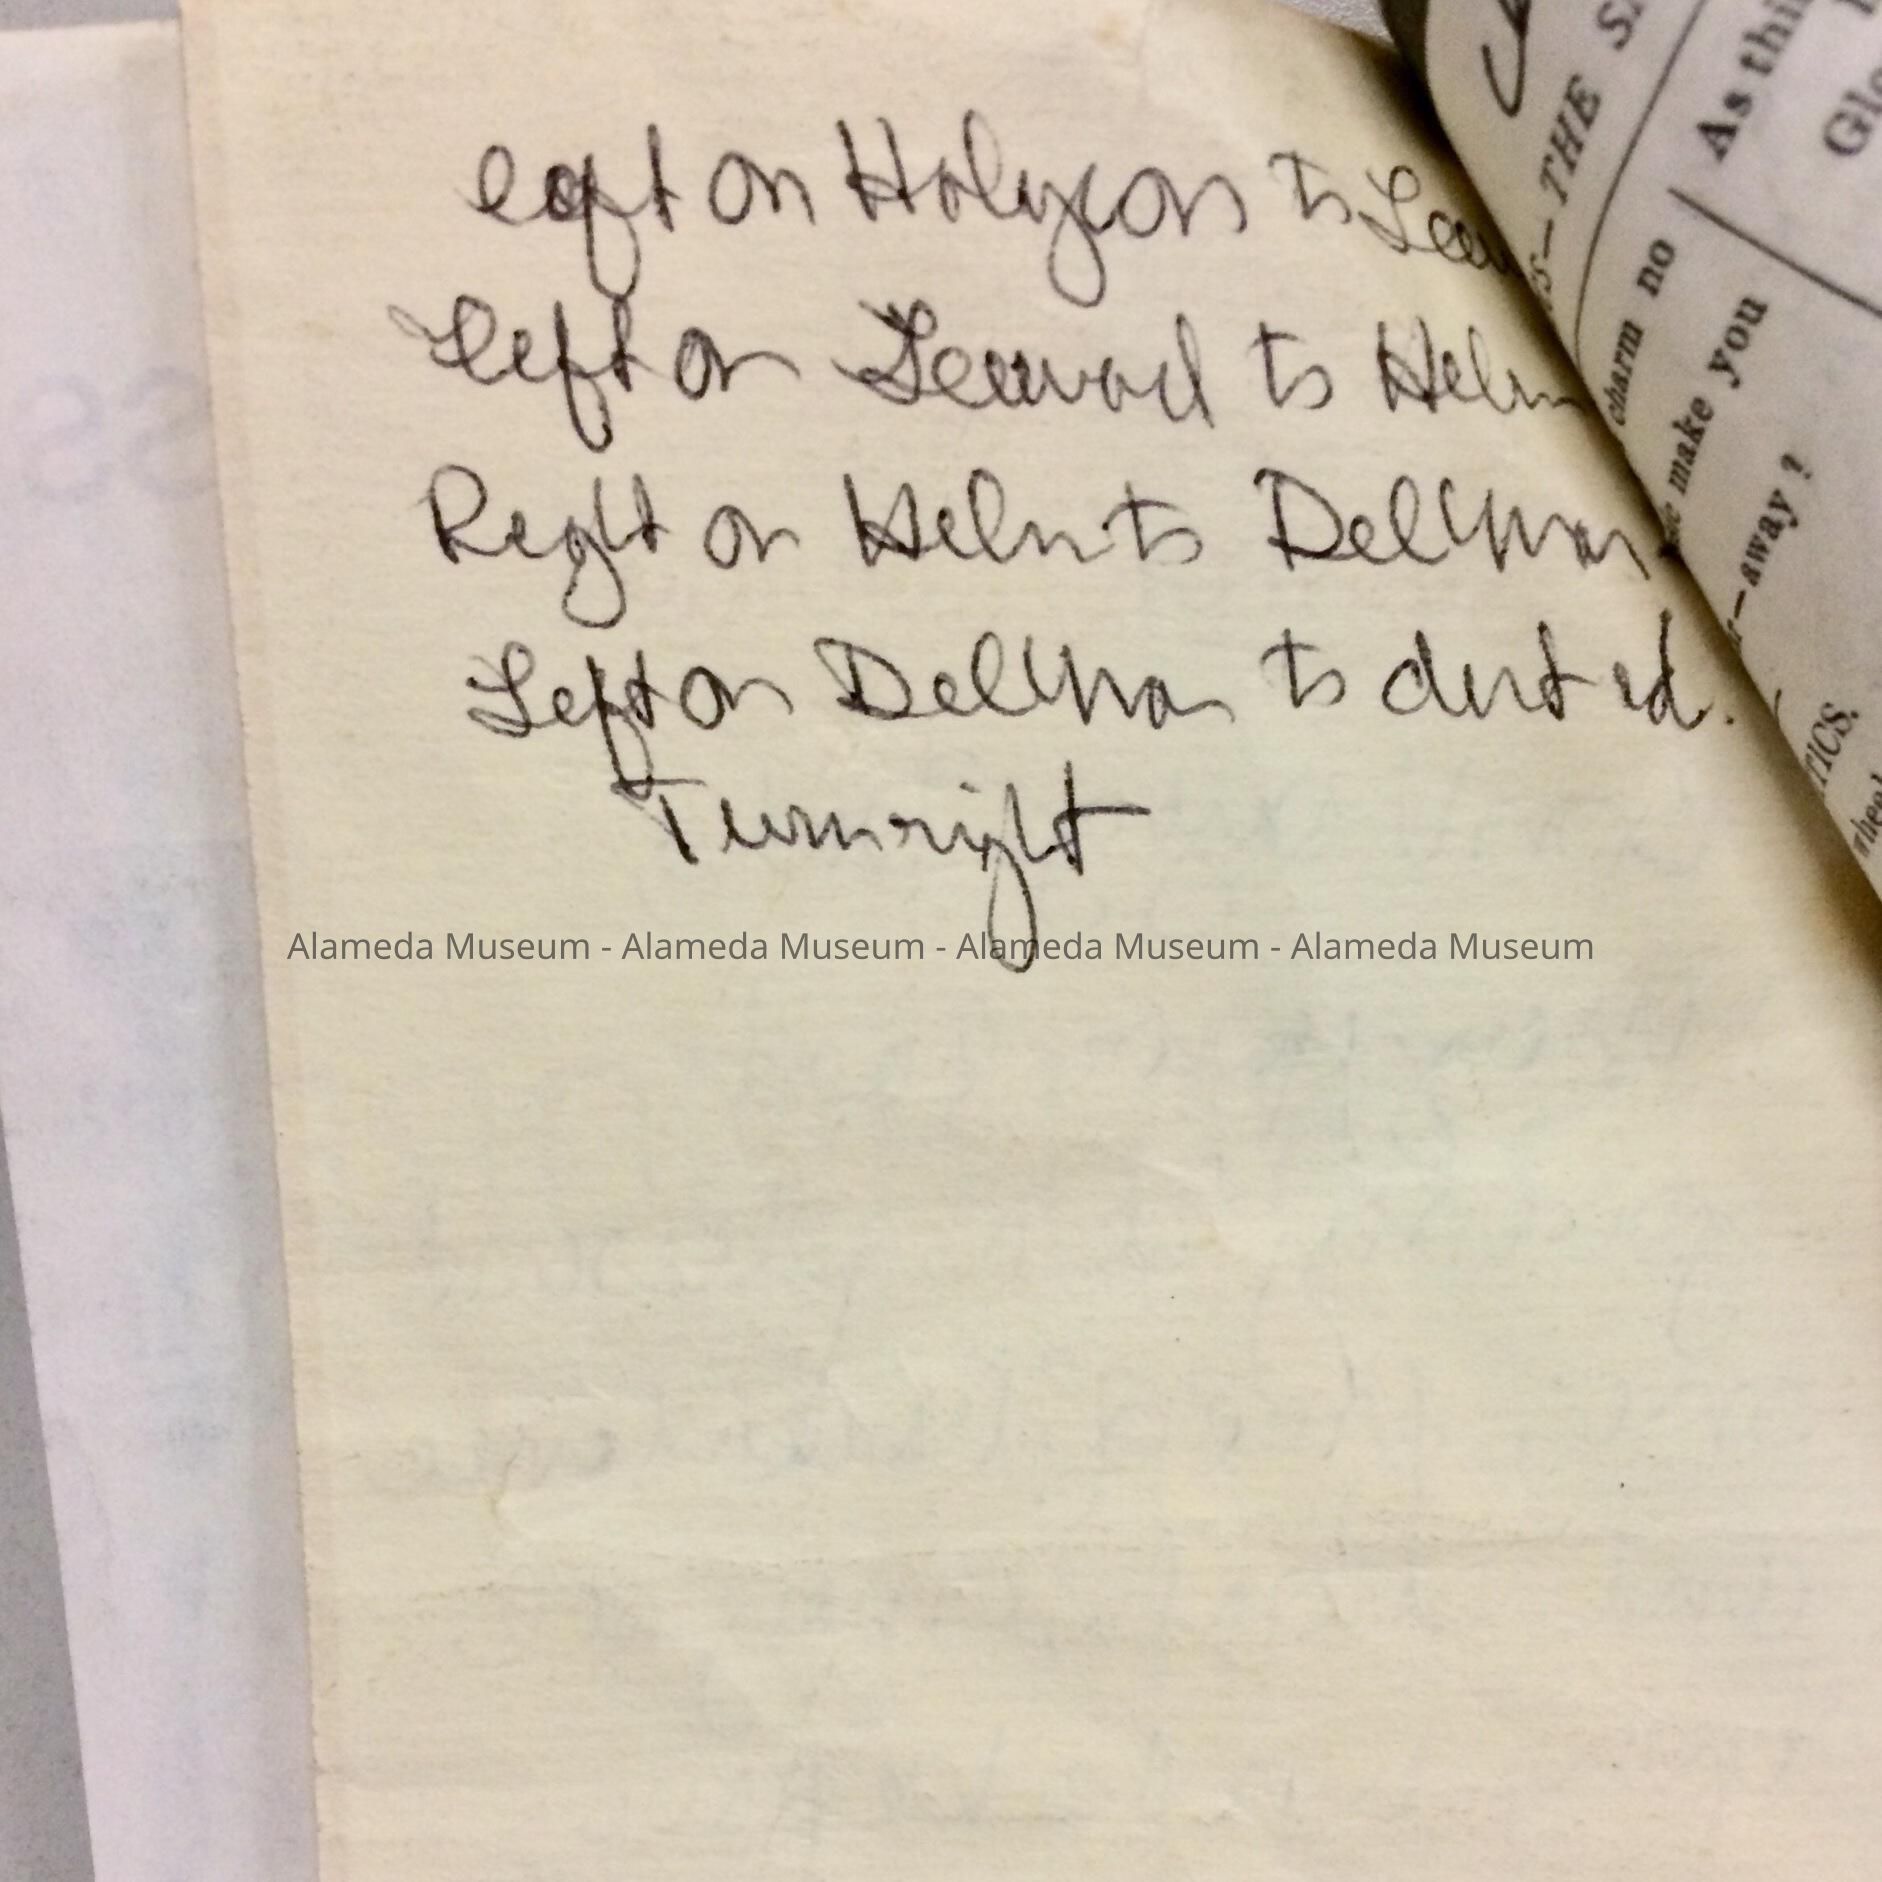 left on Holycon to Lee
Left on Leeward to Helm
Right on Helm to Del Mar
Left on Del Mar to dirt rd.
Turn right
Alameda Museum - Alameda Museum - Alameda Museum - Alameda Museum
THE
As thi
charm no
make you
away ?
TICS.